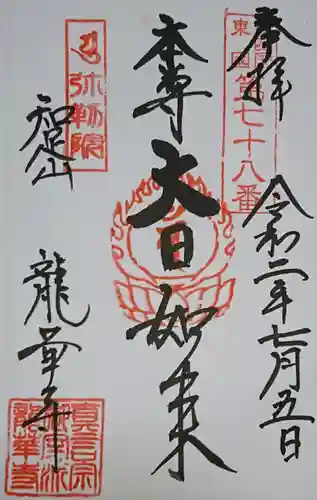 奉拝
東国第七十八番
令和二年七月五日
本尊
大日如来
弥勒院
知足山
龍華寺
真言宗
龍華寺